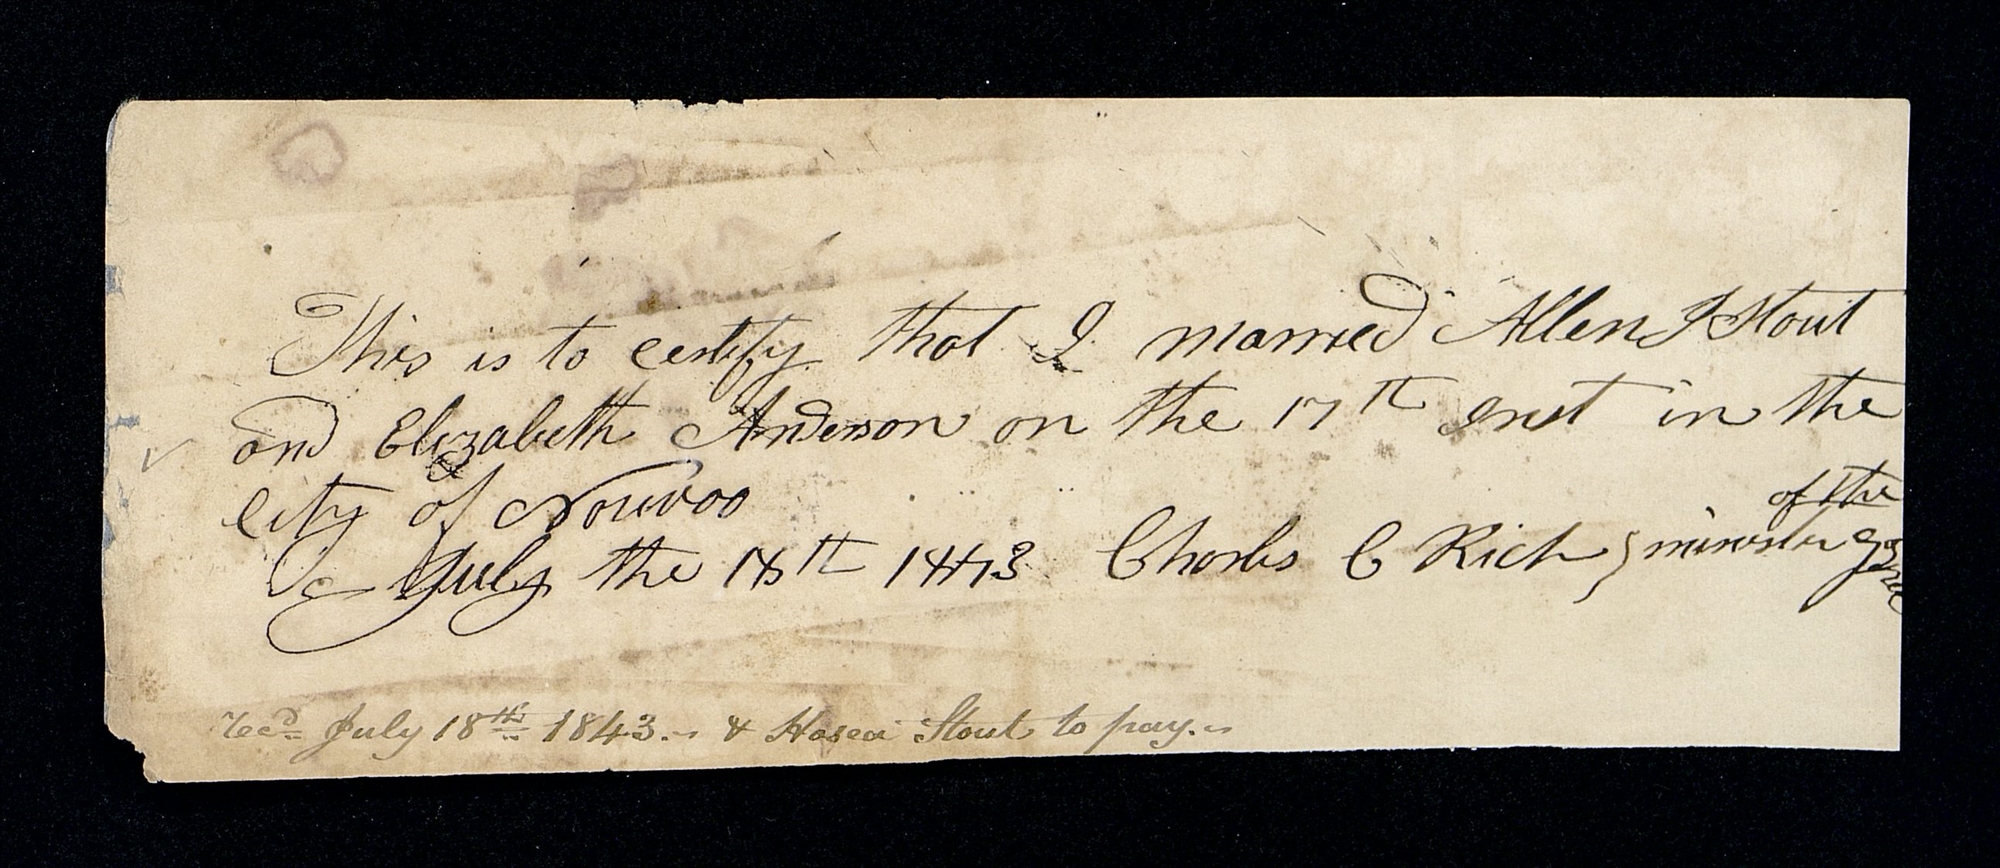 This is to certify that I married Allen J Stout
and Elizabeth Anderson on the 17th inst in the
city of Nouvoo
July the 18th 1843 Charles C Rich } minister of the
recd July 18th 1843. & Hosea Stout to pay.